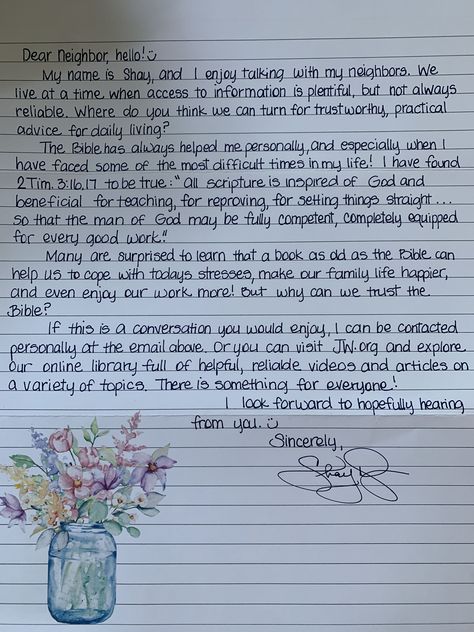 Dear Neighbor, hello! ☺
My name is Shay, and I enjoy talking with my neighbors. We
live at a time when access to information is plentiful, but not always
reliable. Where do you think we can turn for trustworthy, practical
advice for daily living?
The Bible has always helped me personally, and especially when I
have faced some of the most difficult times in my life! I have found
2 Tim. 3:16,17 to be true: "all scripture is inspired of God and
beneficial for teaching, for reproving, for setting things straight...
so that the man of God may be fully competent, completely equipped
for every good work."
Many are surprised to learn that a book as old as the Bible can
help us to cope with todays stresses, make our family life happier,
and even enjoy our work more! But why can we trust the
Bible?
If this is a conversation you would enjoy, I can be contacted
personally at the email above. Or you can visit JW.org and explore
our online library full of helpful, reliable videos and articles on
a variety of topics. There is something for everyone!
I look forward to hopefully hearing
from you. ☺
Sincerely,